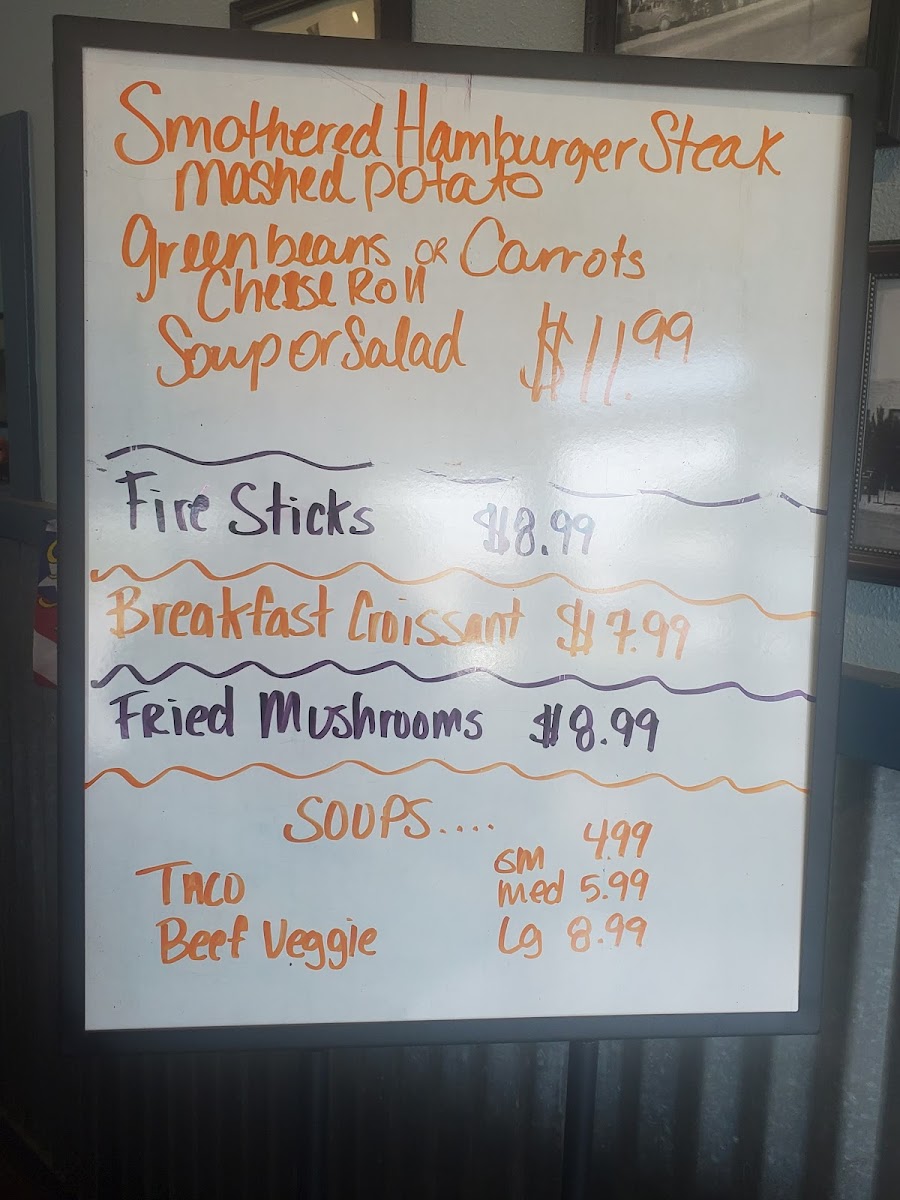 Smothered Hamburger Steak
mashed potato
Green beans OR Carrots
Cheese Roll
Soup or Salad $11.99
Fire Sticks $8.99
Breakfast Croissant $7.99
Fried Mushrooms $8.99
SOUPS....
sm 4.99
Taco med 5.99
Beef Veggie Lg 8.99